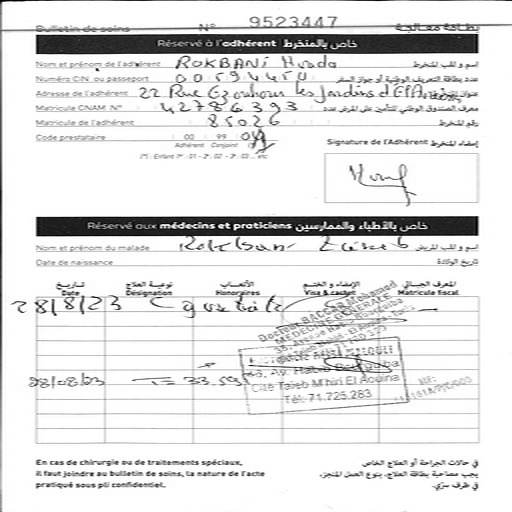 Bulletin de soins N° 9523447 بطاقة معالجة
Réservé à l'adhérent خاص بالمنخرط
Nom et prénom de l'adhérent ROKBANI Houda اسم و لقب المنخرط
Numéro CIN ou passeport 00594450 عدد بطاقة التعريف الوطنية أو جواز السفر
Adresse de l'adhérent 22 Rue les Jardins d'El عنوان
Matricule CNAM N° 42786393 معرف الصندوق الوطني للتأمين على المرض عدد
Matricule de l'adhérent 85026 رقم المنخرط
Code prestataire 00 99
Adhérent Conjoint
(*) : Enfant 1er : 01 - 2e : 02 - 3e : 03 ... etc
Signature de l'Adhérent إمضاء المنخرط
Réservé aux médecins et praticiens خاص بالأطباء والممارسين
Nom et prénom du malade Rokbani اسم و لقب المريض
Date de naissance تاريخ الولادة
تاريخ نوعية العلاج الأتعاب الإمضاء و الختم المعرف الجبائي
Date Désignation Honoraires Visa & cachet Matricule fiscal
28/8/23 C
Docteur BACCAR Mohamed
MEDECINE GENERALE
Av. Habib Bourguiba
28/08/23 T = 33.591
Cité Taieb M'hiri El Aouina
Tél: 71.725.283
En cas de chirurgie ou de traitements spéciaux,
il faut joindre au bulletin de soins, la nature de l'acte
pratiqué sous pli confidentiel.
في حالات الجراحة أو العلاج الخاص
يجب مصاحبة بطاقة العلاج، بنوع العمل المنجز،
في ظرف سري.